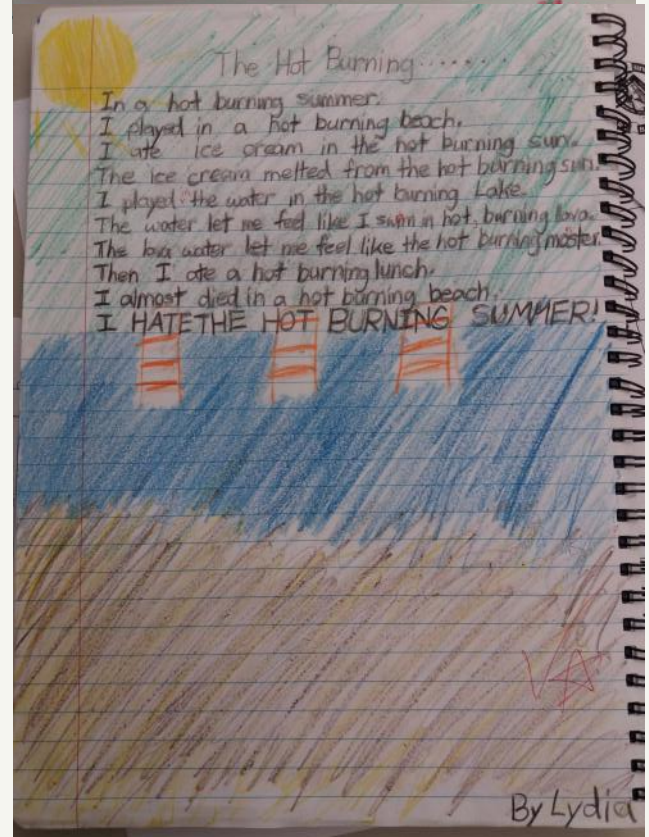 The Hot Burning........
In a hot burning summer.
I played in a hot burning beach.
I ate ice cream in the hot burning sun.
The ice cream melted from the hot burning sun.
I played the water in the hot burning Lake.
The water let me feel like I swim in hot burning lava.
The lava water let me feel like the hot burning moster.
Then I ate a hot burning lunch.
I almost died in a hot burning beach.
I HATE THE HOT BURNING SUMMER!
By Lydia